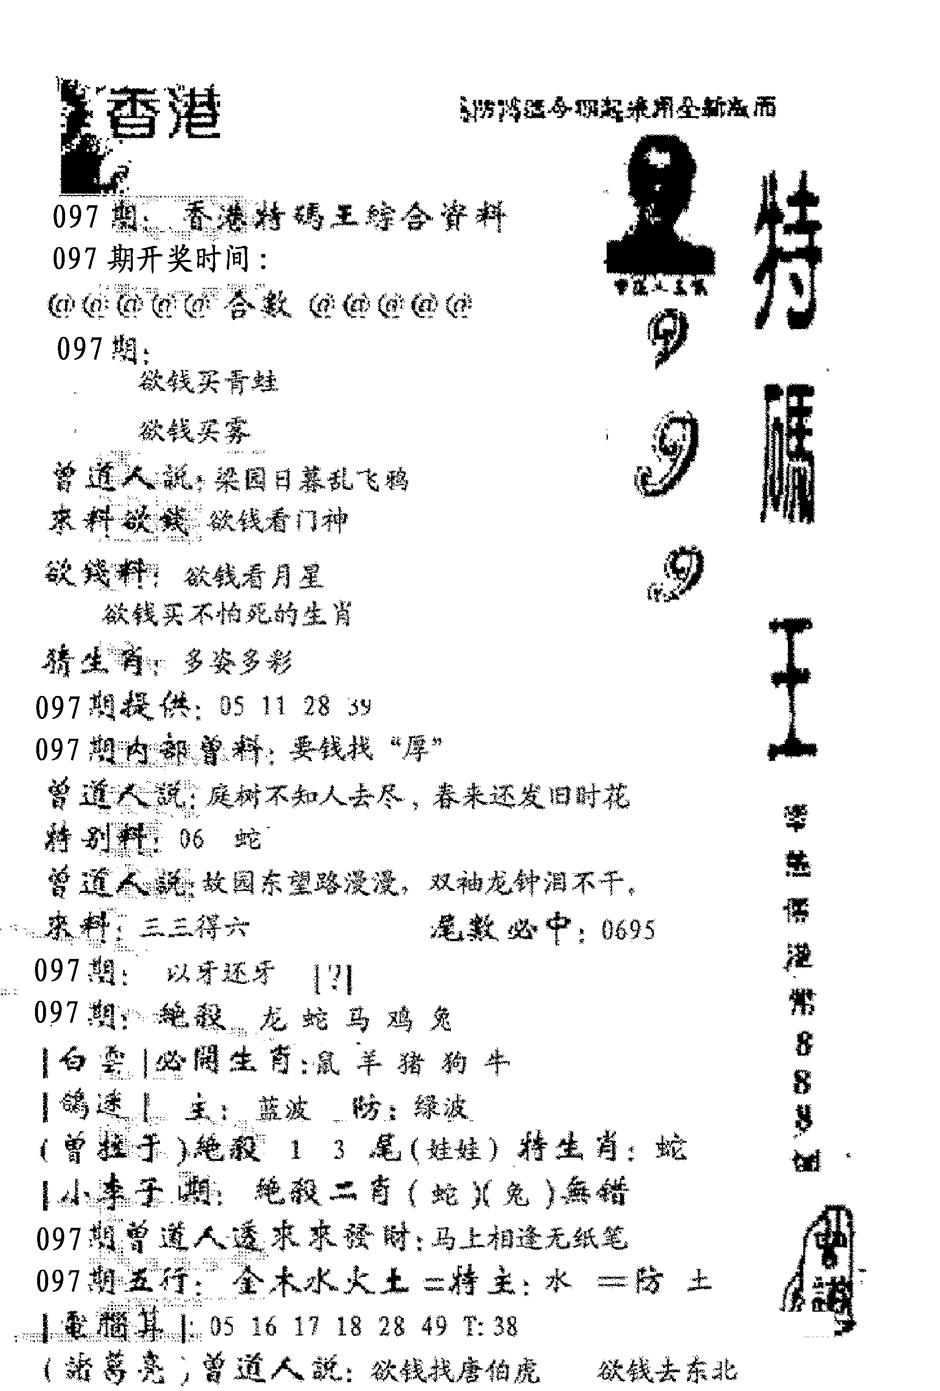 香港
097期：香港特碼王綜合資料
097期开奖时间：
@@@@@合數@@@@@
097期：
欲钱买青蛙
欲钱买雾
曾道人説：梁园日暮乱飞鸦
來料欲錢 欲钱看门神
欲錢料：欲钱看月星
欲钱买不怕死的生肖
猜生肖：多姿多彩
097期提供：05 11 28 39
097期内部曾料：要钱找“厚”
曾道人説：庭树不知人去尽，春来还发旧时花
特别料：06 蛇
曾道人説：故园东望路漫漫，双袖龙钟泪不干。
來料：三三得六 尾數必中：0695
097期： 以牙还牙 |?|
097期：絶殺 龙 蛇 马 鸡 兔
|白雲|必開生肖：鼠 羊 猪 狗 牛
|鴿迷| 主：蓝波 防：绿波
(曾拉于)絶殺 1 3 尾(娃娃)特生肖：蛇
|小李子|期：絶殺二肖(蛇)(兔)無錯
097期曾道人透來來發財：马上相逢无纸笔
097期五行：金木水火土=特主：水 =防 土
|電腦算|：05 16 17 18 28 49 T:38
(諸葛亮)曾道人説：欲钱找唐伯虎 欲钱去东北
特碼王
999
888